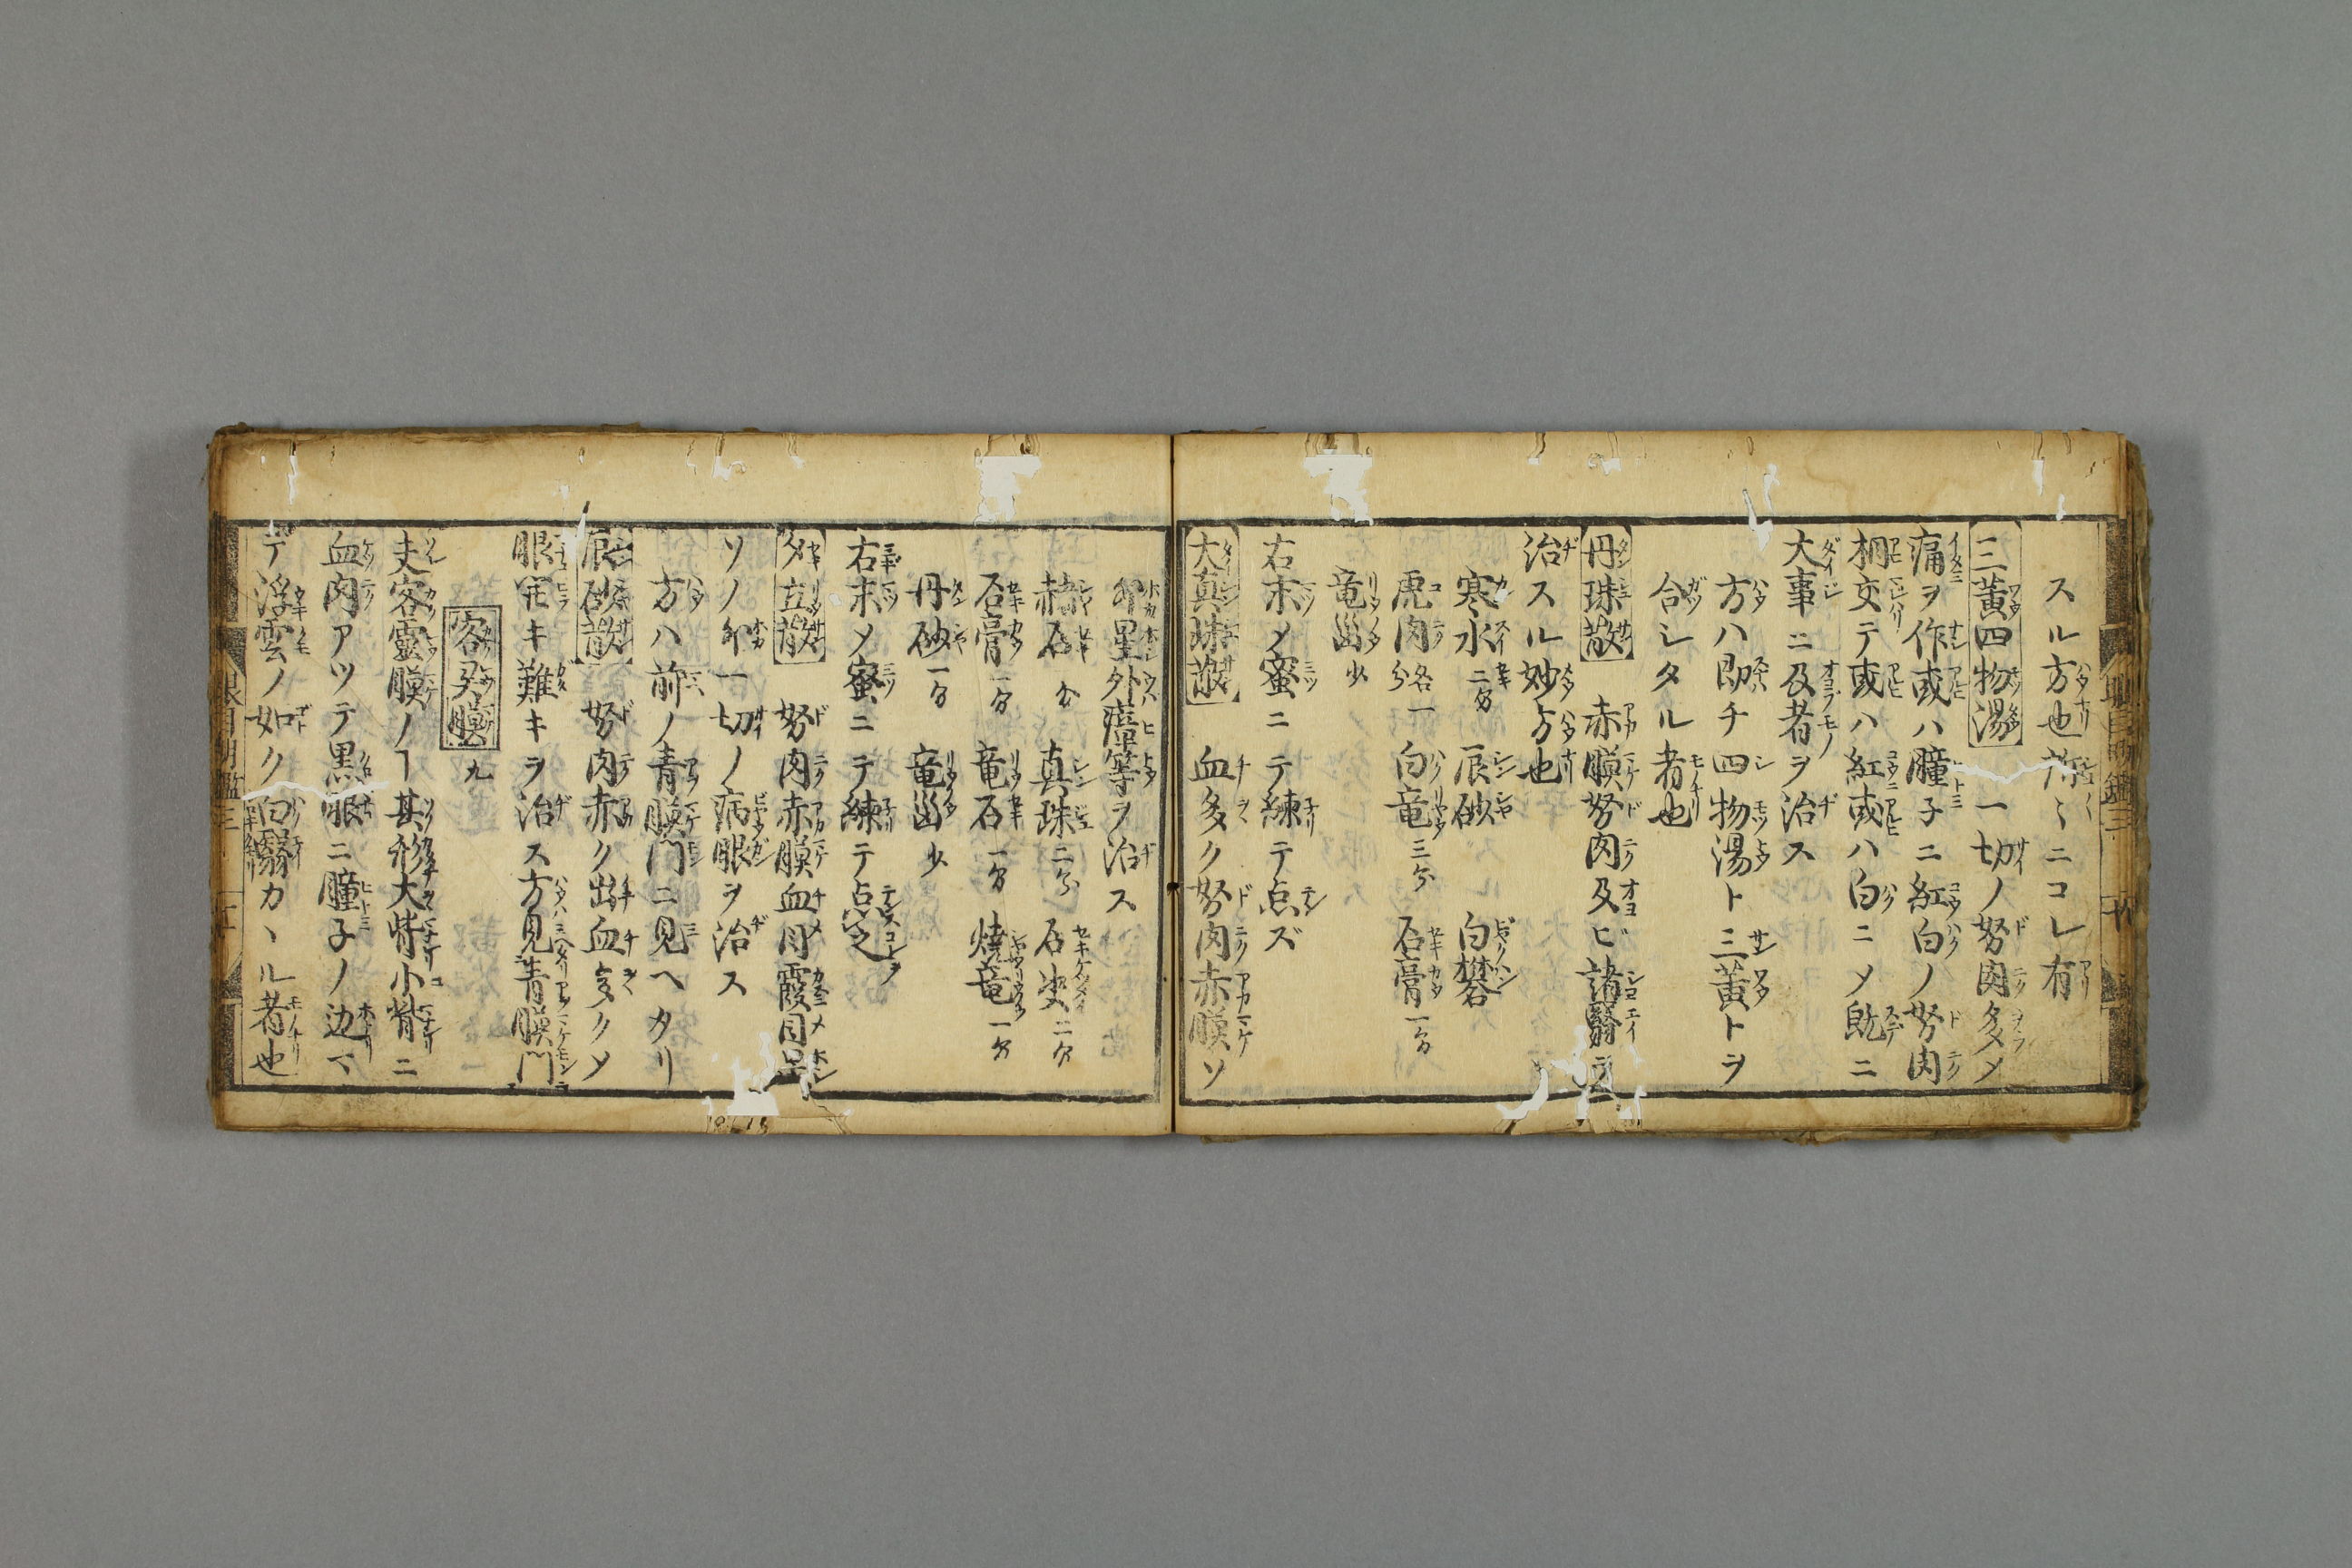 スル方也所〻ニコレ有
三黄四物湯 一切ノ努肉多メ
痛ヲ作或ハ瞳子ニ紅白ノ努肉
相交テ或ハ紅或ハ白ニメ既ニ
大事ニ及者ヲ治ス
方ハ即チ四物湯ト三黄トヲ
合シタル者也
丹珠散 赤膜努肉及ビ諸翳ヲ
治スル妙方也
寒水二匁 辰砂 白礬
虎肉各一匁 白竜三匁 石膏一匁
竜𦚰少
右末メ蜜ニテ練テ点ズ
大真珠散 血多ク努肉赤膜ソ
外星外障等ヲ治ス
赤石 真珠二匁 石決二匁
石膏一匁 竜石一匁 焼竜一匁
丹砂一匁 竜𦚰少
右末メ蜜ニテ練テ点之
立散 努肉赤膜血目霞目星
ソノ外一切ノ病眼ヲ治ス
方ハ前ノ青膜門ニ見ヘタリ
辰砂散 努肉赤ク出血多クメ
眼開キ難キヲ治ス方見青膜門
客灵膜 九
夫客靈膜ノヿ其形大眥小眥ニ
血肉アツテ黒眼ニ瞳子ノ辺マ
テ浮雲ノ如ク白翳カヽル者也
眼目明鑑三